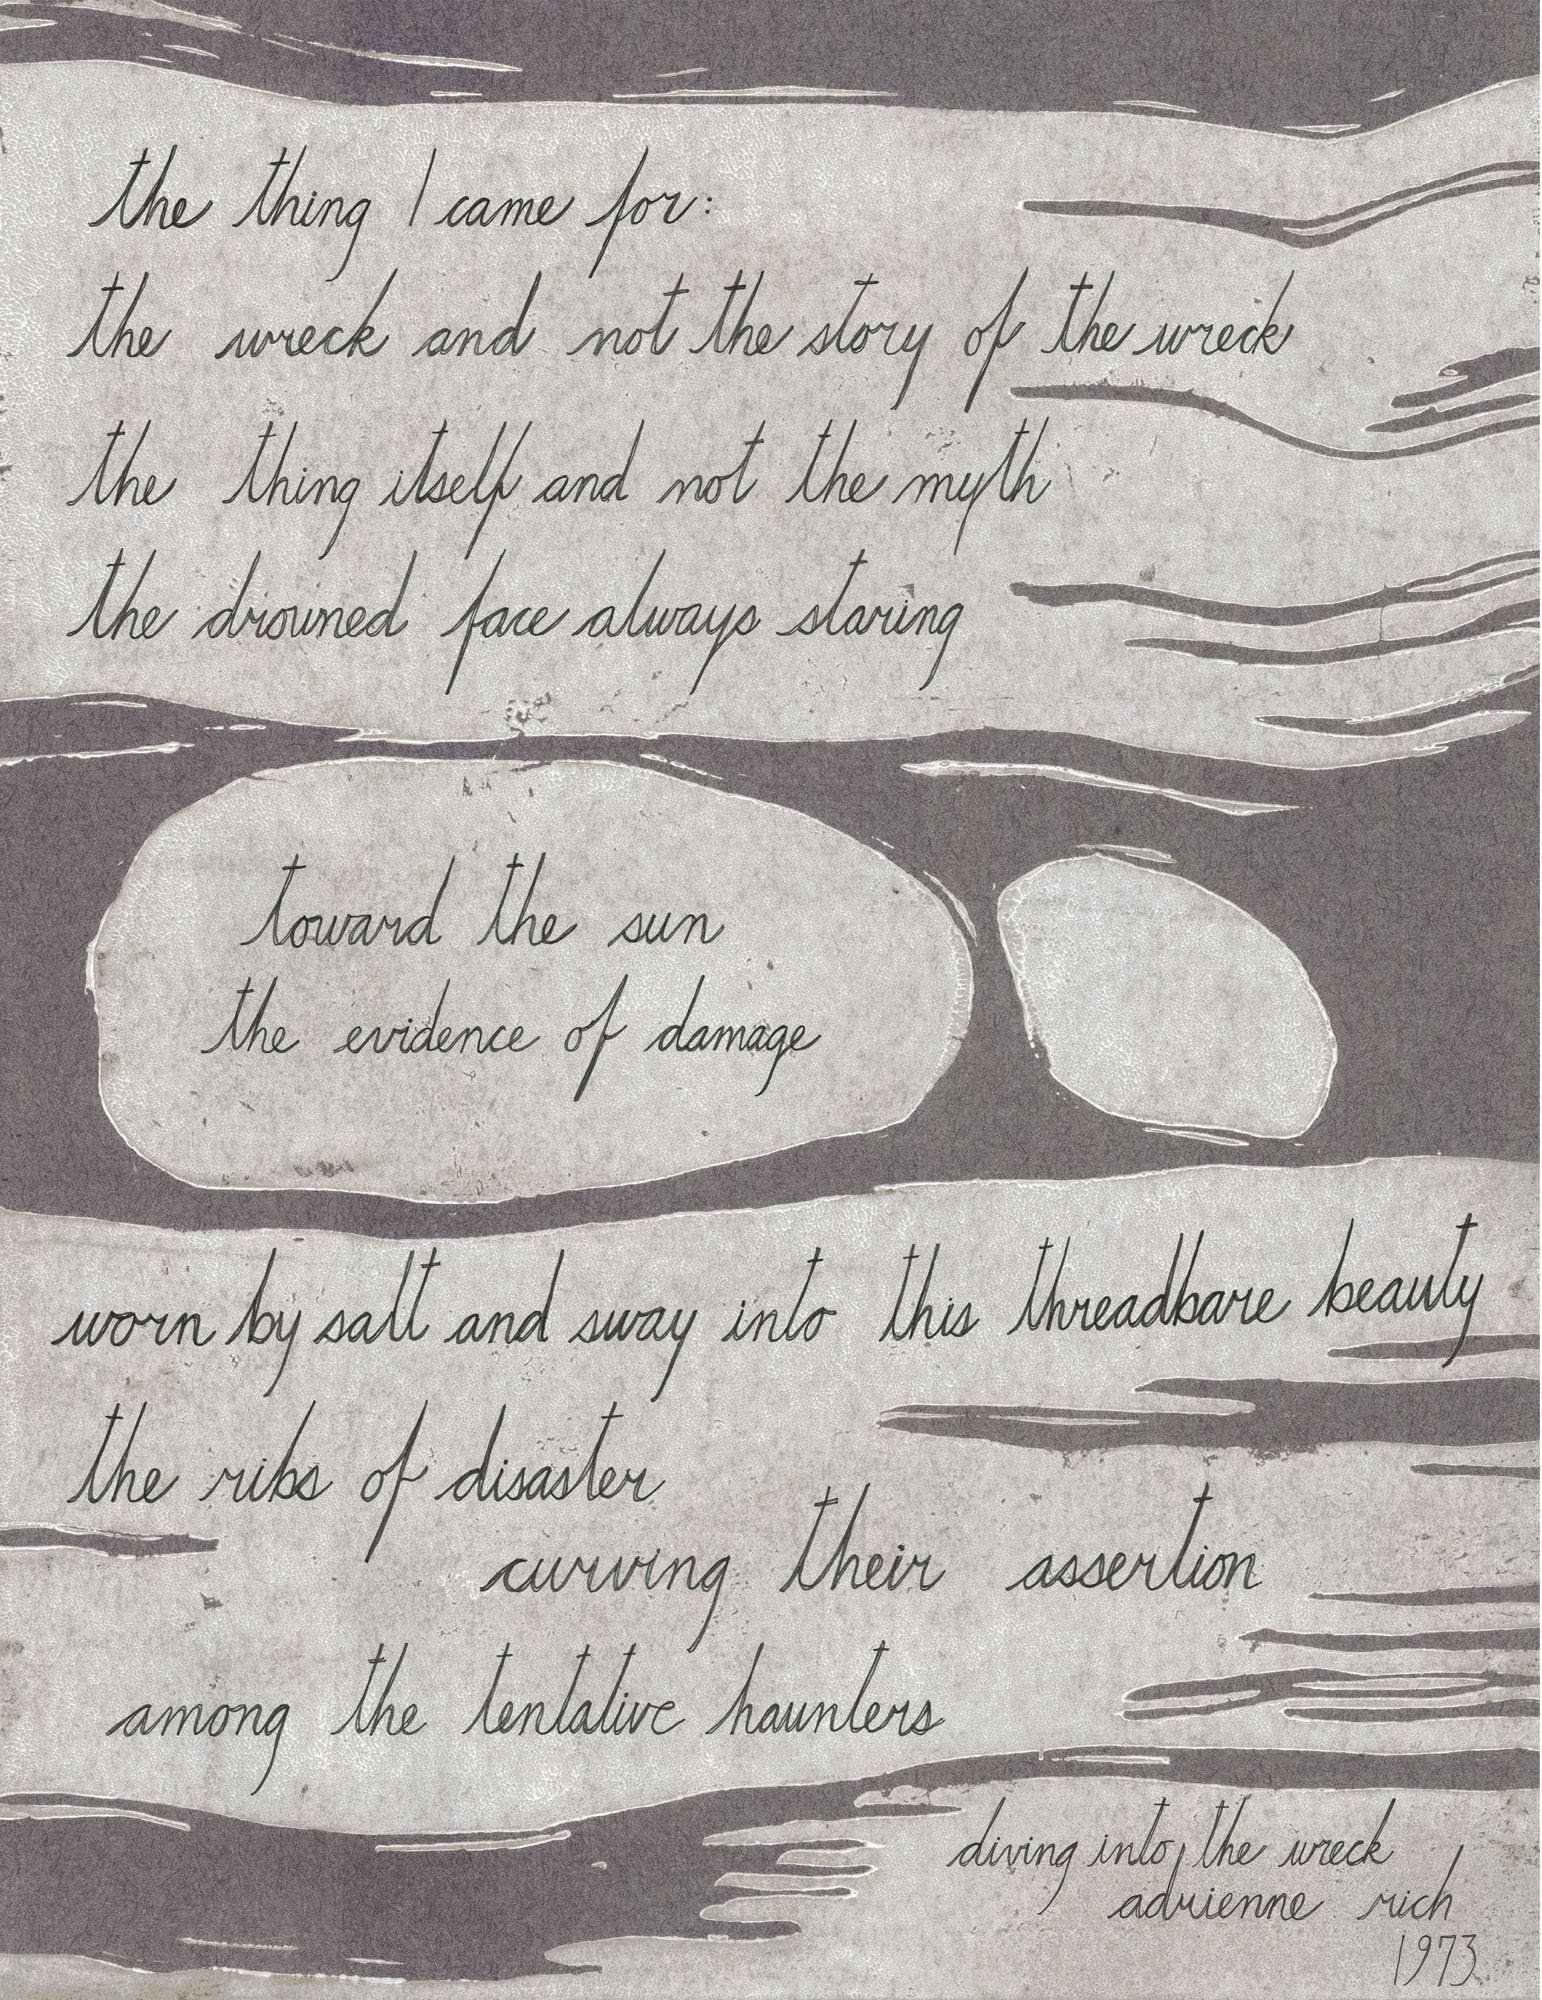 the thing I came for:
the wreck and not the story of the wreck
the thing itself and not the myth
the drowned face always staring
toward the sun
the evidence of damage
worn by salt and sway into this threadbare beauty
the ribs of disaster
curving their assertion
among the tentative haunters
diving into the wreck
adrienne rich
1973